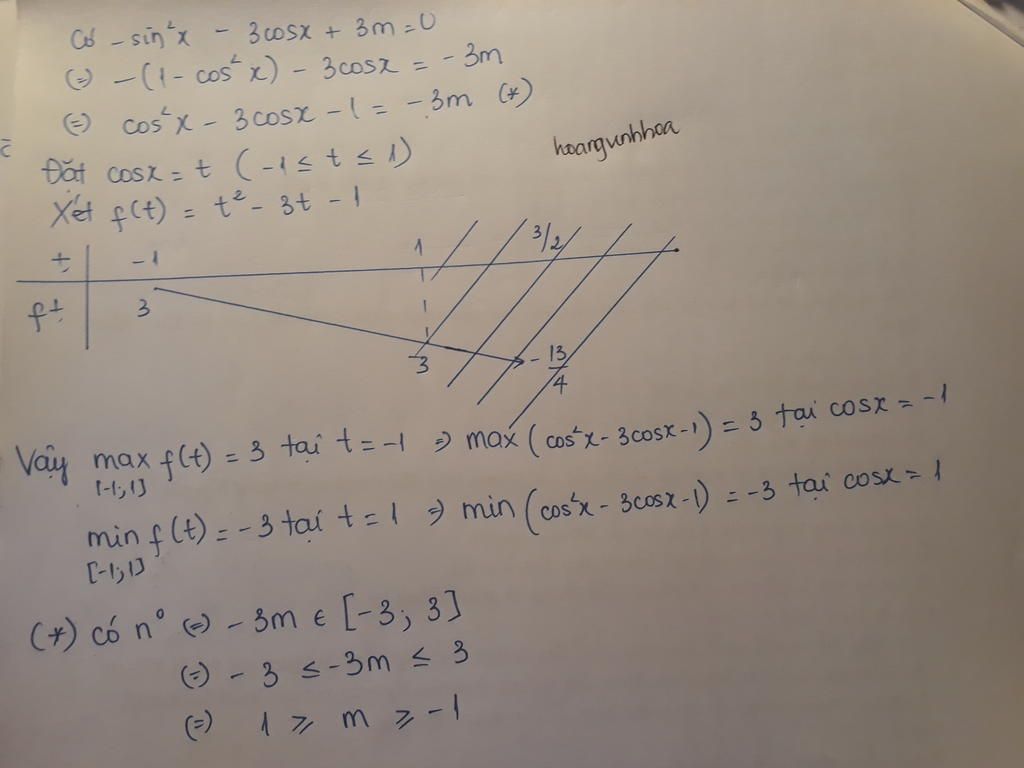 Có -sin²x - 3cosx + 3m = 0
(=) -(1 - cos²x) - 3cosx = -3m
(=) cos²x - 3cosx - 1 = -3m (*)
hoangvnhhoa
Đặt cosx = t (-1 ≤ t ≤ 1)
Xét f(t) = t² - 3t - 1
t -1 1 3/2
ft 3 -3 -13/4
Vậy max f(t) = 3 tại t = -1 => max (cos²x - 3cosx - 1) = 3 tại cosx = -1
[-1;1]
min f(t) = -3 tại t = 1 => min (cos²x - 3cosx - 1) = -3 tại cosx = 1
[-1;1]
(*) có n° (=) -3m ∈ [-3; 3]
(=) -3 ≤ -3m ≤ 3
(=) 1 ≥ m ≥ -1